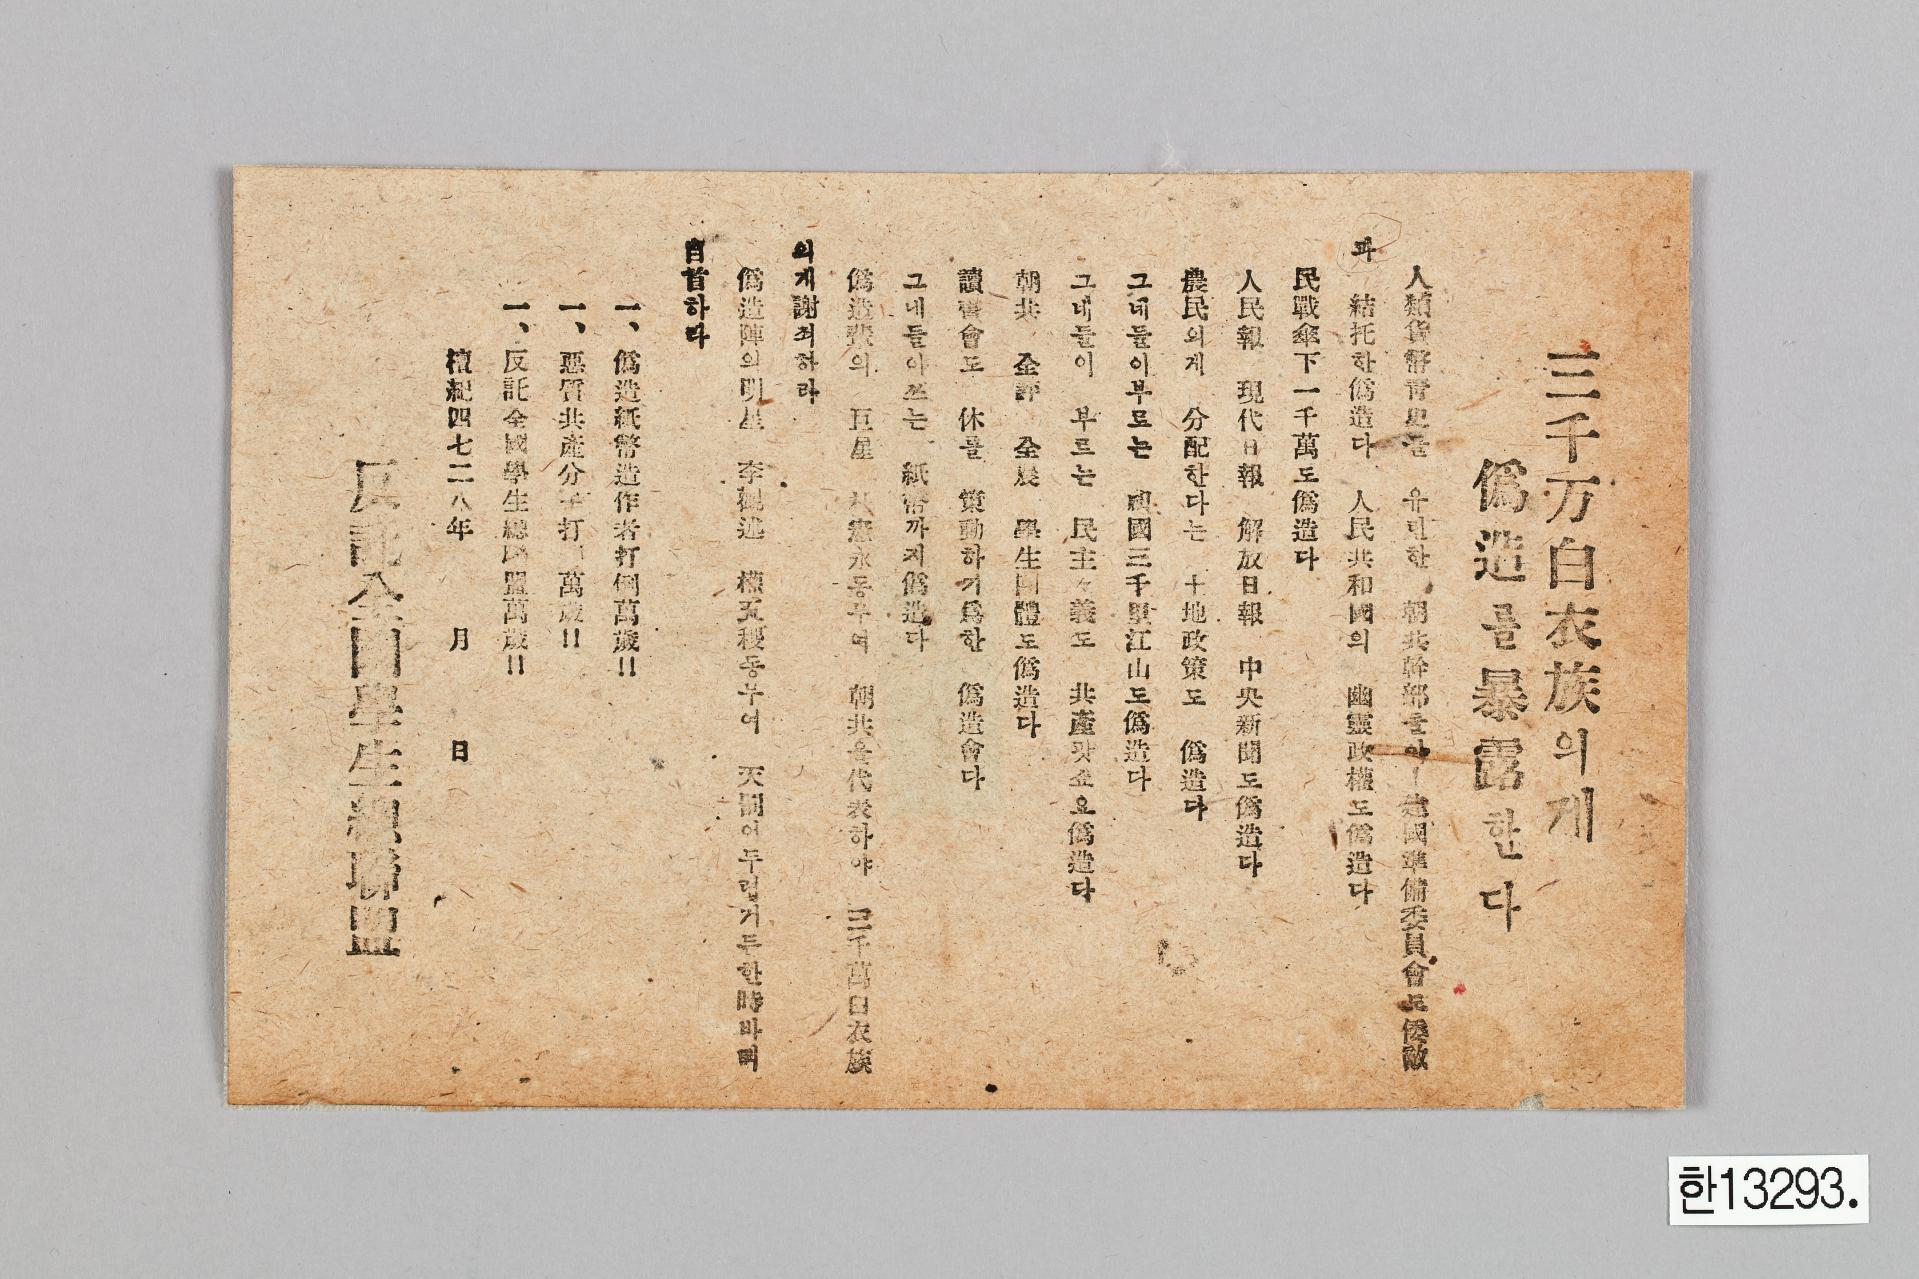 三千万白衣族의게
僞造를暴露한다
人類貨幣靑史를 유린한 朝共幹部들아! 建國準備委員會도倭敵
과 結托한僞造다 人民共和國의 幽靈政權도僞造다
民戰傘下一千萬도僞造다
人民報 現代日報 解放日報 中央新聞도僞造다
農民의게 分配한다는 土地政策도 僞造다
그네들이부르는 祖國三千里江山도僞造다
그네들이 부르는 民主々義도 共產 僞造다
朝共 全評 全農 學生團體도僞造다
讀書會도 休를 策動하기爲한 僞造會다
그네들아쓰는 紙幣까지僞造다
僞造黨의 巨星 朴憲永동무여 朝共을代表하야 三千萬白衣族
의게謝죄하라
僞造陣의明星 李觀述 權五稷동무여 天罰이두렵거든한時바삐
自首하라
一、僞造紙幣造作者打倒萬歲!!
一、惡質共產分子打倒萬歲!!
一、反託全國學生總聯盟萬歲!!
檀紀四七二八年 月 日
反託全國學生總聯盟
한13293.